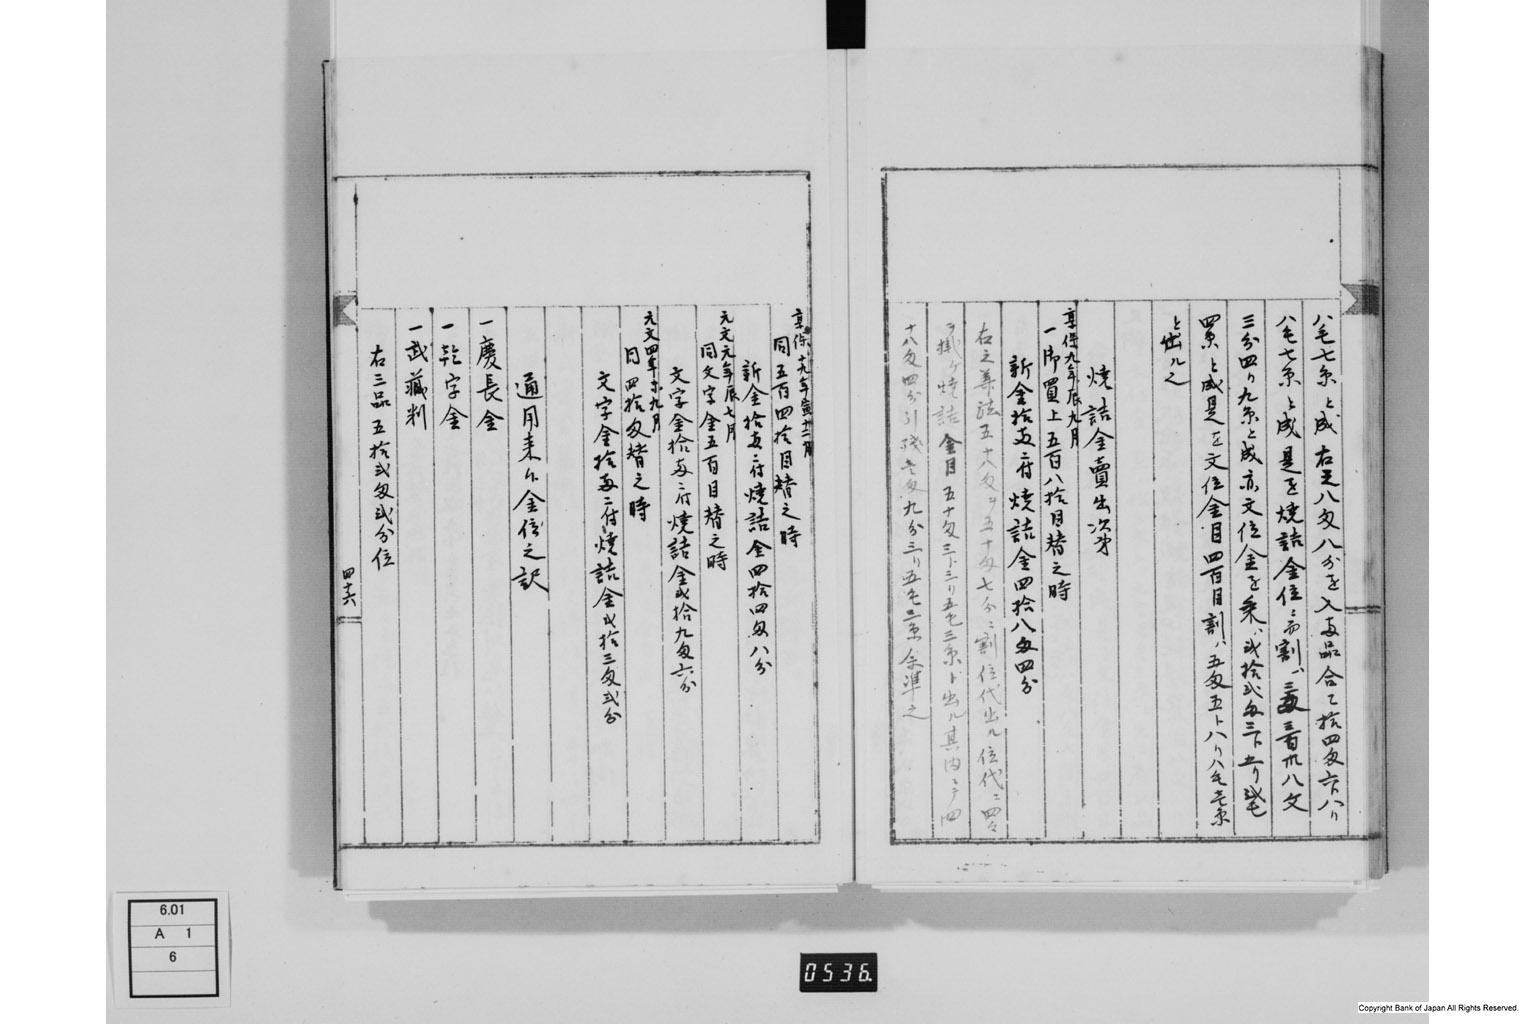 八毛七糸と成右疋八匁八分を入両品合て拾四匁六ト八リ
八毛七糸と成是を焼詰金位ニ而割、三両三百卅八文
三分四リ九糸と成亦文位金を乗、弐拾弐匁三ト五リ弐毛
四糸と成是を文位金目四百目割、五匁五ト八リ八毛壱糸
と出ル之
焼詰金賣出次第
享保九年辰九月
一御買上五百八拾目替之時
新金拾両ニ付焼詰金四拾八匁四分
右之算法五十八匁ヲ五十匁七分ニ割位代出ル位代ニ四々
ヲ掛ケ焼詰金目五十匁三ト三リ五毛三糸ト出ル其内ニテ四
十八匁四分引残壱匁九分三リ五毛三糸余準之
享保十九年寅十二月
同五百四拾目替之時
新金拾両ニ付焼詰金四拾四匁八分
元文元年辰七月
同文字金五百目替之時
文字金拾両ニ付焼詰金弐拾九匁六分
元文四年未九月
同四拾匁替之時
文字金拾両ニ付焼詰金弐拾三匁弐分
通用来ル金位之訳
一慶長金
一乾字金
一武蔵判
右三品五拾弐匁弐分位
四十六
6.01
A 1
6
0536
Copyright Bank of Japan All Rights Reserved.